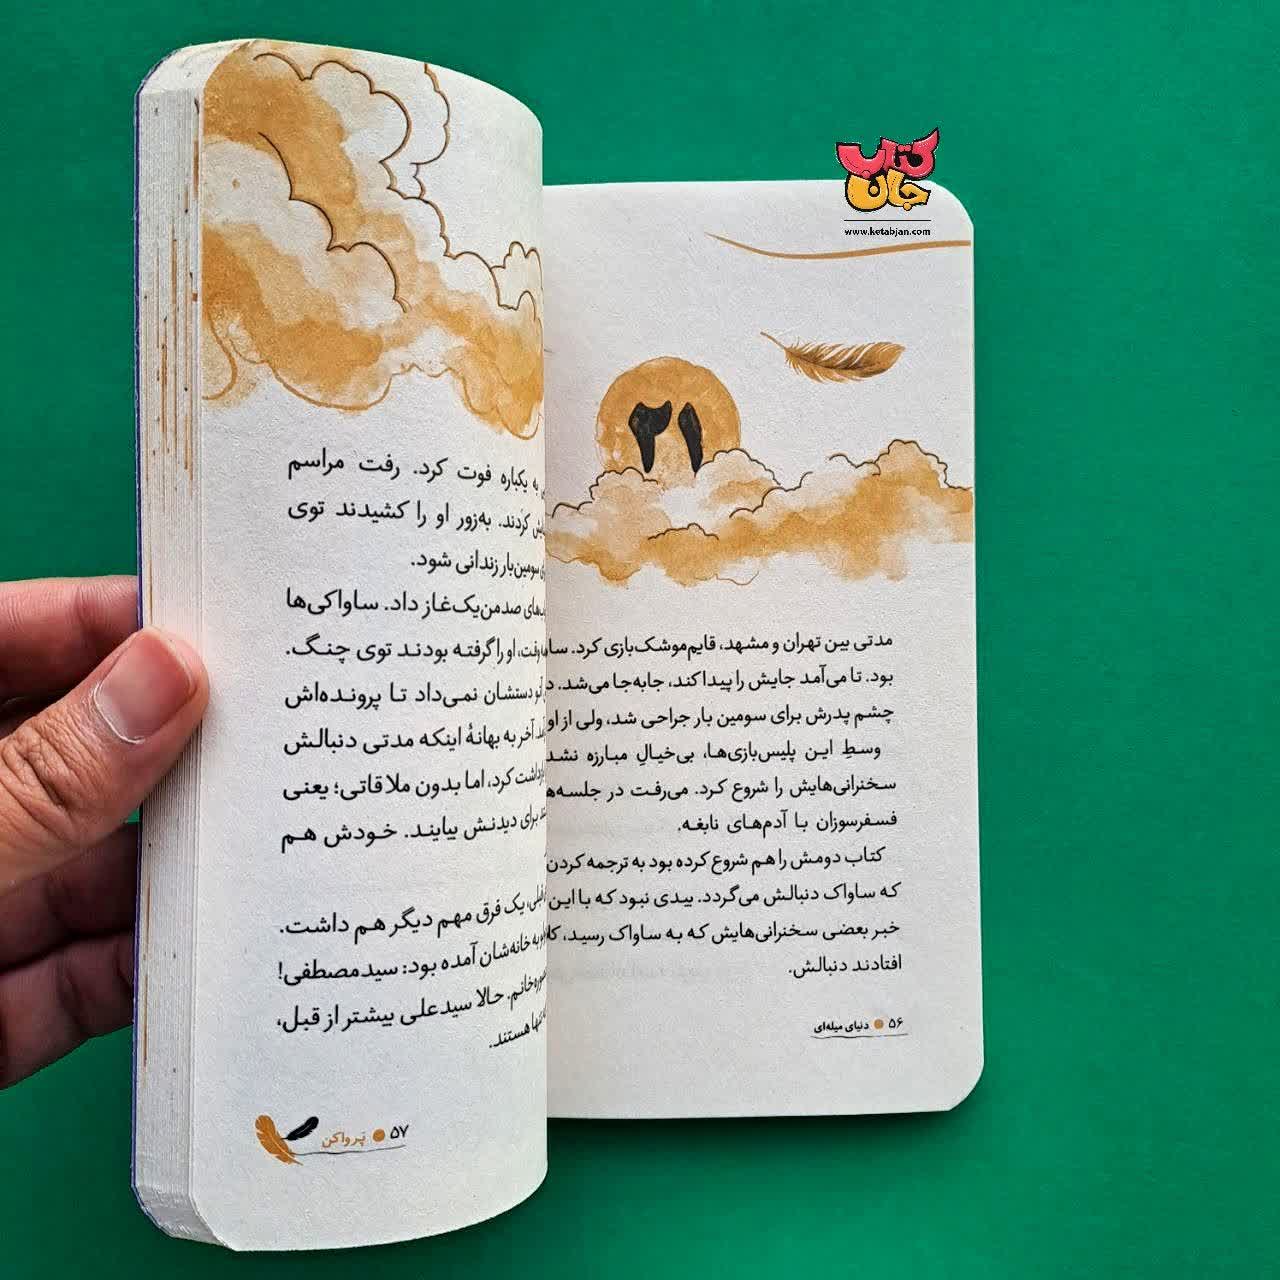 کتاب
جان
www.ketabjan.com
۲۱
مدتی بین تهران و مشهد، قایم‌موشک‌بازی کرد.
بود. تا می‌آمد جایش را پیدا کند، جابه‌جا می‌شد.
چشم پدرش برای سومین بار جراحی شد، ولی از او
وسطِ این پلیس‌بازی‌ها، بی‌خیالِ مبارزه نشد
سخنرانی‌هایش را شروع کرد. می‌رفت در
فسفرسوزان با آدم‌های نابغه.
کتاب دومش را هم شروع کرده بود به ترجمه کردن
که ساواک دنبالش می‌گردد. بیدی نبود که با این
خبر بعضی سخنرانی‌هایش که به ساواک رسید،
افتادند دنبالش.
۵۶ ● دنیای میله‌ای
به یکباره فوت کرد. رفت مراسم
کردند. به‌زور او را کشیدند توی
سومین‌بار زندانی شود.
صدمن‌یک‌غاز داد. ساواکی‌ها
وقت، او را گرفته بودند توی چنگ.
دستشان نمی‌داد تا پرونده‌اش
آخر به بهانهٔ اینکه مدتی دنبالش
کرد، اما بدون ملاقاتی؛ یعنی
برای دیدنش بیایند. خودش هم
یک فرق مهم دیگر هم داشت.
به خانه‌شان آمده بود: سیدمصطفی!
خانم. حالا سیدعلی بیشتر از قبل،
هستند.
۵۷ ● پَر واکن